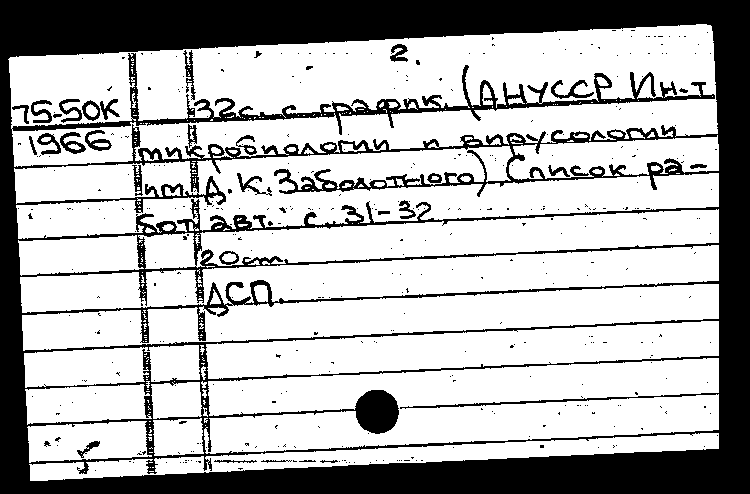 2.
75-50К 32с. с график. (АНУССР Ин-т
1966 микробиологии и вирусологии
им. Д.К. Заболотного) Список ра-
бот авт. с. 31-32
20 cm.
ДСП.
5